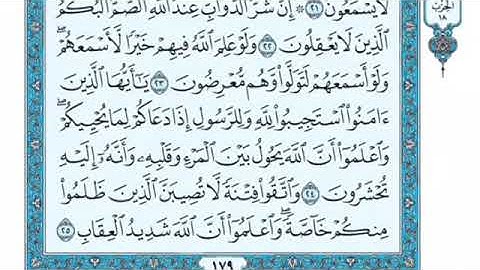 الحزب
١٨
لَا يَسْمَعُونَ ٢١ ۞ إِنَّ شَرَّ ٱلدَّوَآبِّ عِندَ ٱللَّهِ ٱلصُّمُّ ٱلْبُكْمُ
ٱلَّذِينَ لَا يَعْقِلُونَ ٢٢ وَلَوْ عَلِمَ ٱللَّهُ فِيهِمْ خَيْرًا لَّأَسْمَعَهُمْ ۖ
وَلَوْ أَسْمَعَهُمْ لَتَوَلَّوا۟ وَّهُم مُّعْرِضُونَ ٢٣ يَٰٓأَيُّهَا ٱلَّذِينَ
ءَامَنُوا۟ ٱسْتَجِيبُوا۟ لِلَّهِ وَلِلرَّسُولِ إِذَا دَعَاكُمْ لِمَا يُحْيِيكُمْ ۖ
وَٱعْلَمُوٓا۟ أَنَّ ٱللَّهَ يَحُولُ بَيْنَ ٱلْمَرْءِ وَقَلْبِهِۦ وَأَنَّهُۥٓ إِلَيْهِ
تُحْشَرُونَ ٢٤ وَٱتَّقُوا۟ فِتْنَةً لَّا تُصِيبَنَّ ٱلَّذِينَ ظَلَمُوا۟
مِنكُمْ خَآصَّةً ۖ وَٱعْلَمُوٓا۟ أَنَّ ٱللَّهَ شَدِيدُ ٱلْعِقَابِ ٢٥
١٧٩